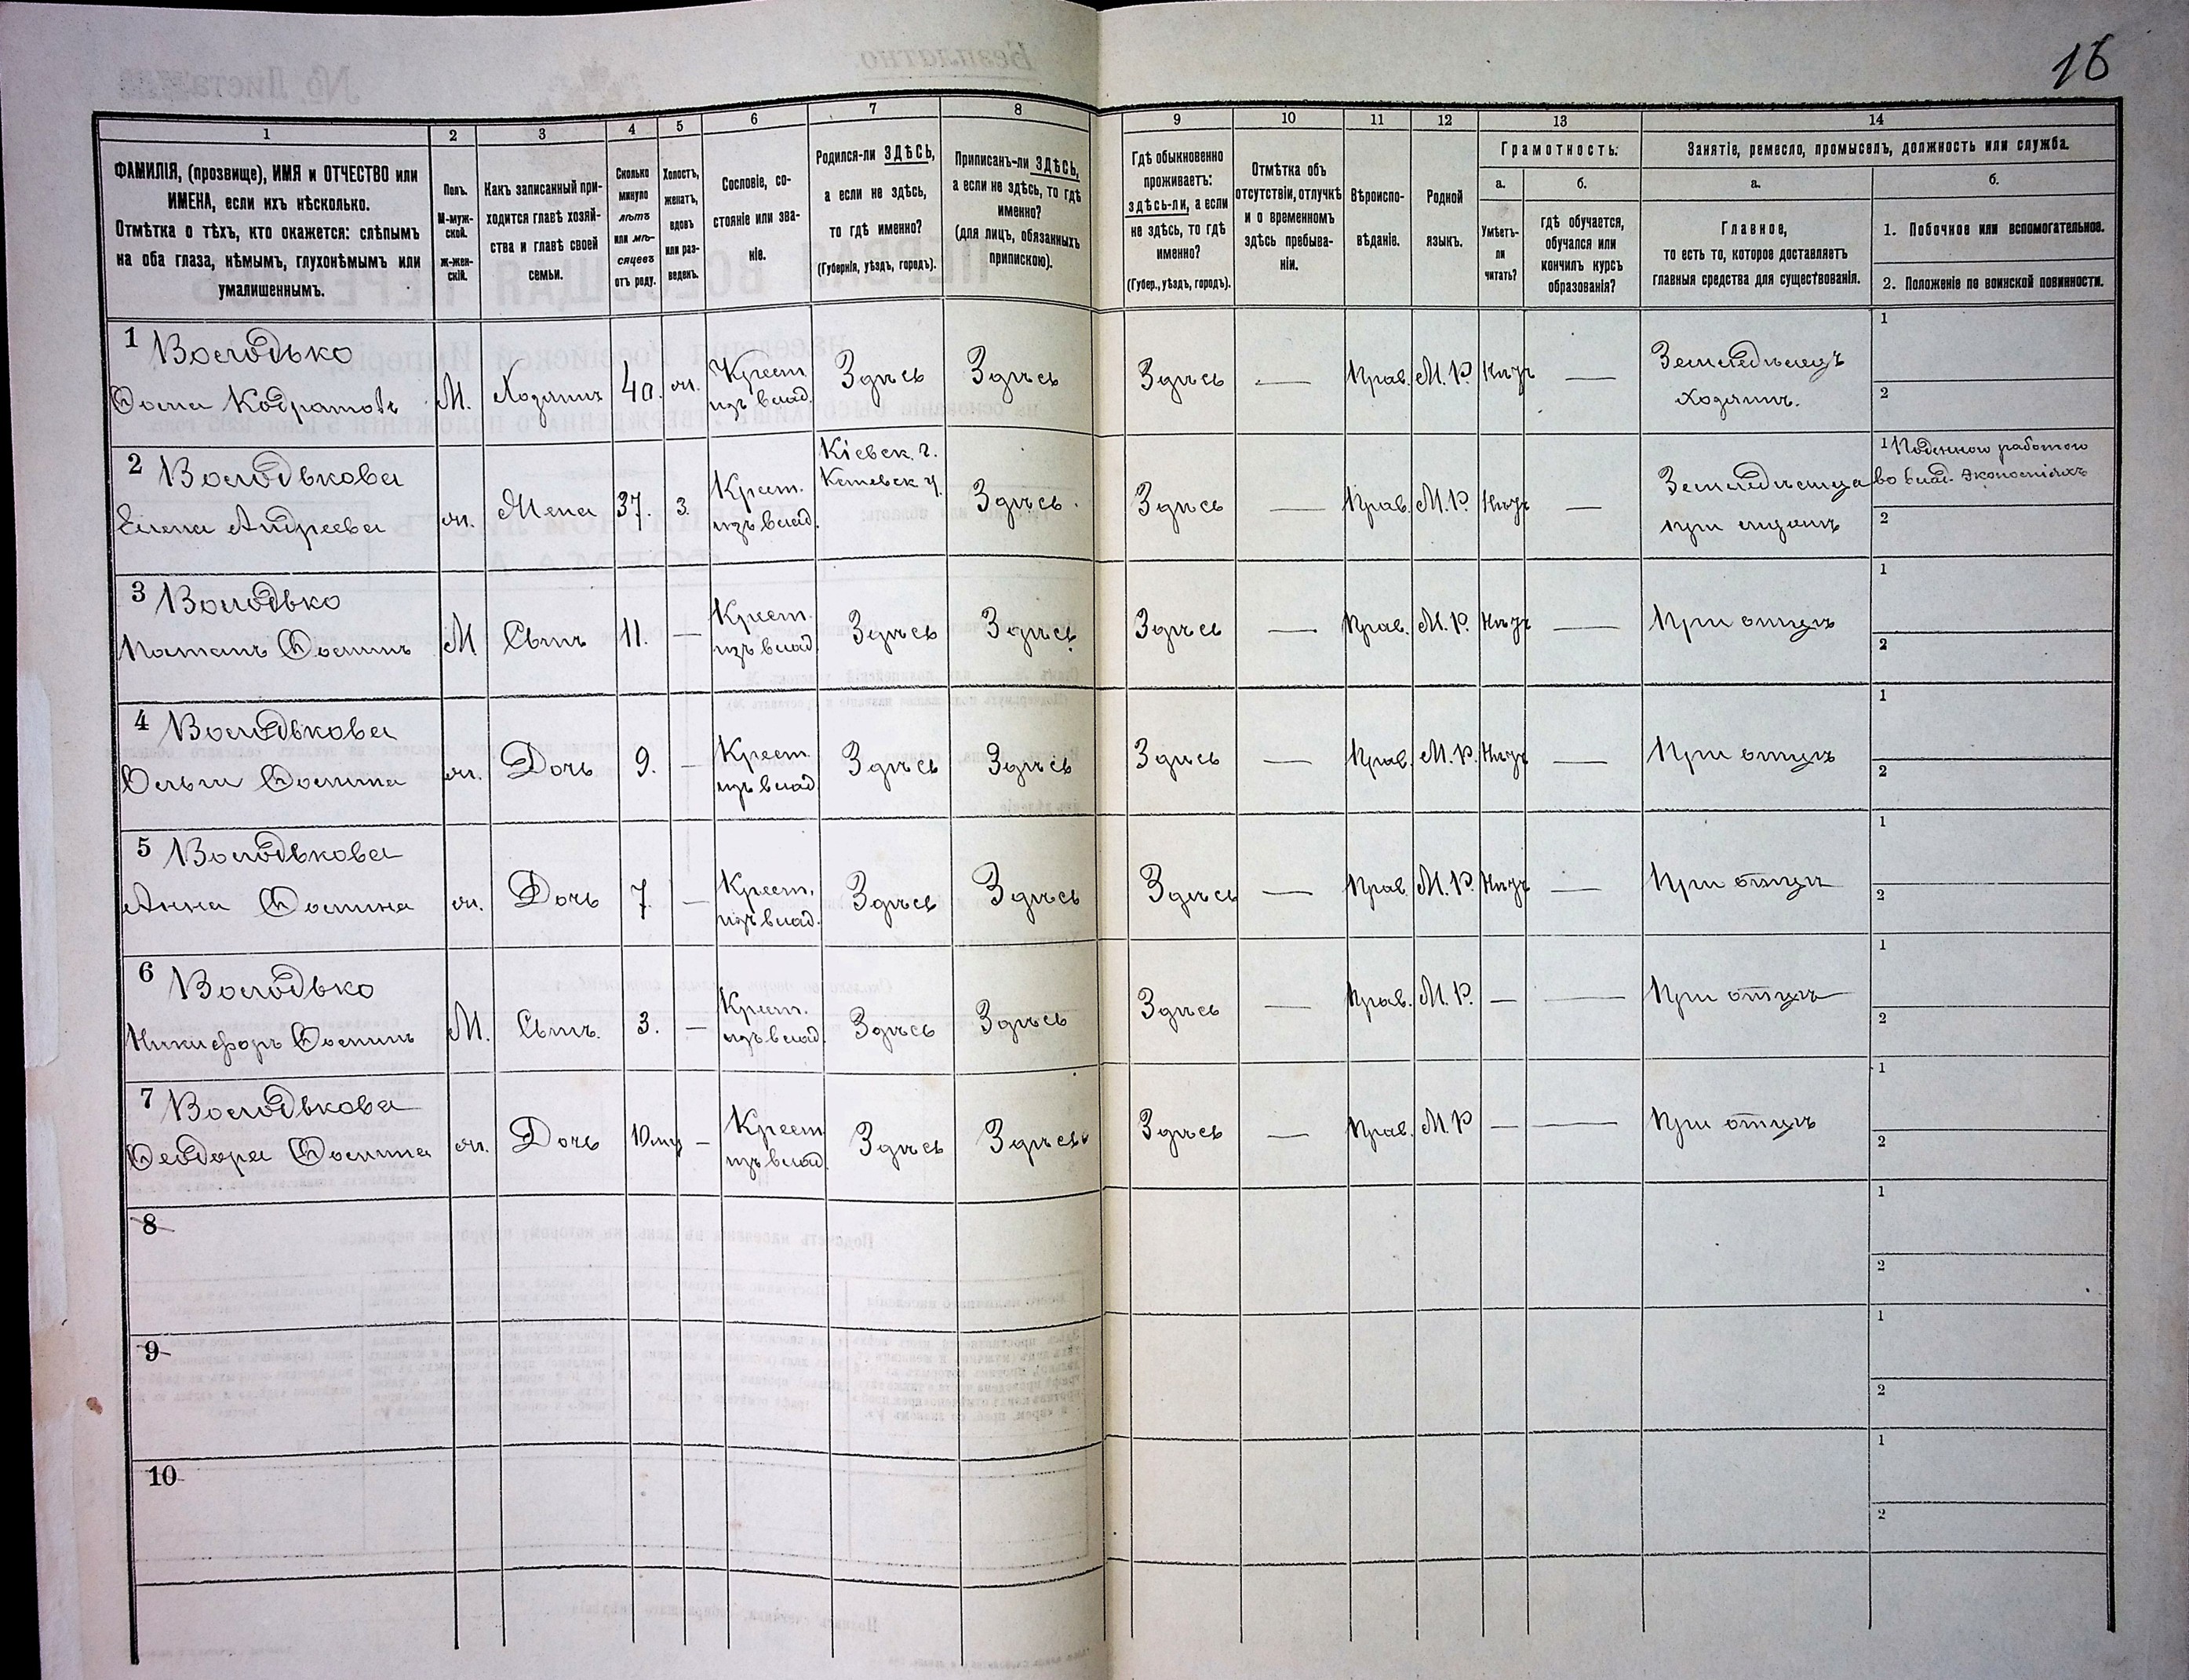 16
1
2
3
4
5
6
7
8
9
10
11
12
13
14
ФАМИЛІЯ, (прозвище), ИМЯ и ОТЧЕСТВО или
ИМЕНА, если ихъ нѣсколько.
Отмѣтка о тѣхъ, кто окажется: слѣпымъ
на оба глаза, нѣмымъ, глухонѣмымъ или
умалишеннымъ.
Полъ.
М-муж-
ской.
ж-жен-
скій.
Какъ записанный при-
ходится главѣ хозяй-
ства и главѣ своей
семьи.
Сколько
минуло
лѣтъ
или мѣ-
сяцевъ
отъ роду.
Холостъ,
женатъ,
вдовъ
или раз-
веденъ.
Сословіе, со-
стояніе или зва-
ніе.
Родился-ли ЗДѢСЬ,
а если не здѣсь,
то гдѣ именно?
(Губернія, уѣздъ, городъ).
Приписанъ-ли ЗДѢСЬ,
а если не здѣсь, то гдѣ
именно?
(для лицъ, обязанныхъ
припискою).
Гдѣ обыкновенно
проживаетъ:
здѣсь-ли, а если
не здѣсь, то гдѣ
именно?
(Губер., уѣздъ, городъ).
Отмѣтка объ
отсутствіи, отлучкѣ
и о временномъ
здѣсь пребыва-
ніи.
Вѣроиспо-
вѣданіе.
Родной
языкъ.
Грамотность.
а.
Умѣетъ-
ли
читать?
б.
гдѣ обучается,
обучался или
кончилъ курсъ
образованія?
Занятіе, ремесло, промыселъ, должность или служба.
а.
Главное,
то есть то, которое доставляетъ
главныя средства для существованія.
б.
1. Побочное или вспомогательное.
2. Положеніе по воинской повинности.
1 Володько
Ѳома Кодратовъ
М.
Хозяинъ
40.
ж.
Крест.
изъ влад.
Здѣсь
Здѣсь
Здѣсь
—
Прав.
М. Р.
Нѣтъ
—
Земледѣлецъ
хозяинъ.
1
2
2 Володькова
Елена Андреева
ж.
Жена
37.
з.
Крест.
изъ влад.
Кіевск. г.
Каневск у.
Здѣсь.
Здѣсь
—
Прав.
М. Р.
Нѣтъ
—
Земледѣлица
при мужѣ
1 Поденною работою
во влад. экономіяхъ
2
3 Володько
Потапъ Ѳоминъ
М
Сынъ
11.
—
Крест.
изъ влад.
Здѣсь
Здѣсь
Здѣсь
—
Прав.
М. Р.
Нѣтъ
—
При отцѣ
1
2
4 Володькова
Ольга Ѳомина
ж.
Дочь
9.
—
Крест.
изъ влад
Здѣсь
Здѣсь
Здѣсь
—
Прав.
М. Р.
Нѣтъ
—
При отцѣ
1
2
5 Володькова
Анна Ѳомина
ж.
Дочь
7.
—
Крест.
изъ влад.
Здѣсь
Здѣсь
Здѣсь
—
Прав.
М. Р.
Нѣтъ
—
При отцѣ
1
2
6 Володько
Никифоръ Ѳоминъ
М.
Сынъ.
3.
—
Крест.
изъ влад.
Здѣсь
Здѣсь
Здѣсь
—
Прав.
М. Р.
—
—
При отцѣ
1
2
7 Володькова
Ѳеодора Ѳомина
ж.
Дочь
10 мц
—
Крест
изъ влад.
Здѣсь
Здѣсь
Здѣсь
—
Прав.
М. Р
—
—
При отцѣ
1
2
8
1
2
9
1
2
10
1
2